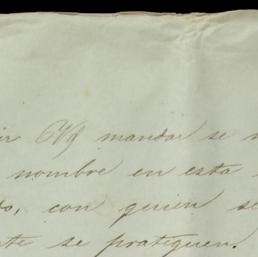 mandar se
nombre en esta
con quien se
se pratiquen.